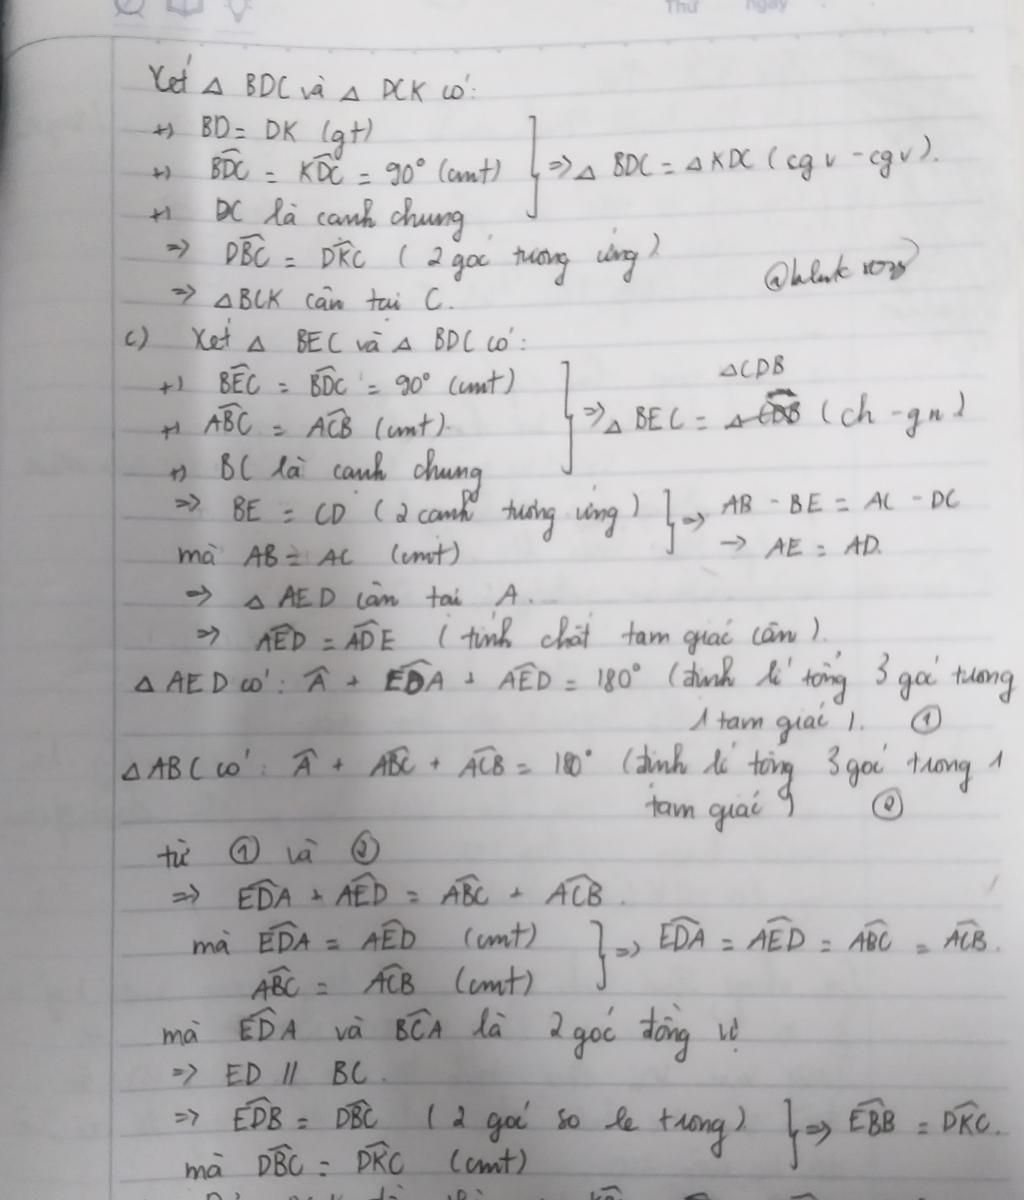 Thứ ngày
Xét △ BDC và △ DCK có:
+) BD = DK (gt)
+) B̂DC = K̂DC = 90° (cmt)
+) DC là cạnh chung
⇒ △ BDC = △ KDC (cgv - cgv).
⇒ D̂BC = D̂KC (2 góc tương ứng)
⇒ △BCK cân tại C.
c) Xét △ BEC và △ BDC có:
+) B̂EC = B̂DC = 90° (cmt)
+) ÂBC = ÂCB (cmt).
+) BC là cạnh chung
△CDB
⇒ △ BEC = △ (ch - gn)
⇒ BE = CD (2 cạnh tương ứng)
mà AB = AC (cmt)
⇒ AB - BE = AC - DC
→ AE = AD.
⇒ △ AED cân tại A.
⇒ ÂED = ÂDE (tính chất tam giác cân).
△ AED có: Â + ÊDA + ÂED = 180° (định lí tổng 3 góc tương
1 tam giác). ①
△ ABC có: Â + ÂBC + ÂCB = 180° (định lí tổng 3 góc trong 1
tam giác) ②
từ ① và ②
⇒ ÊDA + ÂED = ÂBC + ÂCB.
mà ÊDA = ÂED (cmt)
ÂBC = ÂCB (cmt)
⇒ ÊDA = ÂED = ÂBC = ÂCB.
mà ÊDA và B̂CA là 2 góc đồng vị
⇒ ED // BC.
⇒ ÊDB = D̂BC (2 góc so le trong)
mà D̂BC = D̂KC (cmt)
⇒ ÊBB = D̂KC.